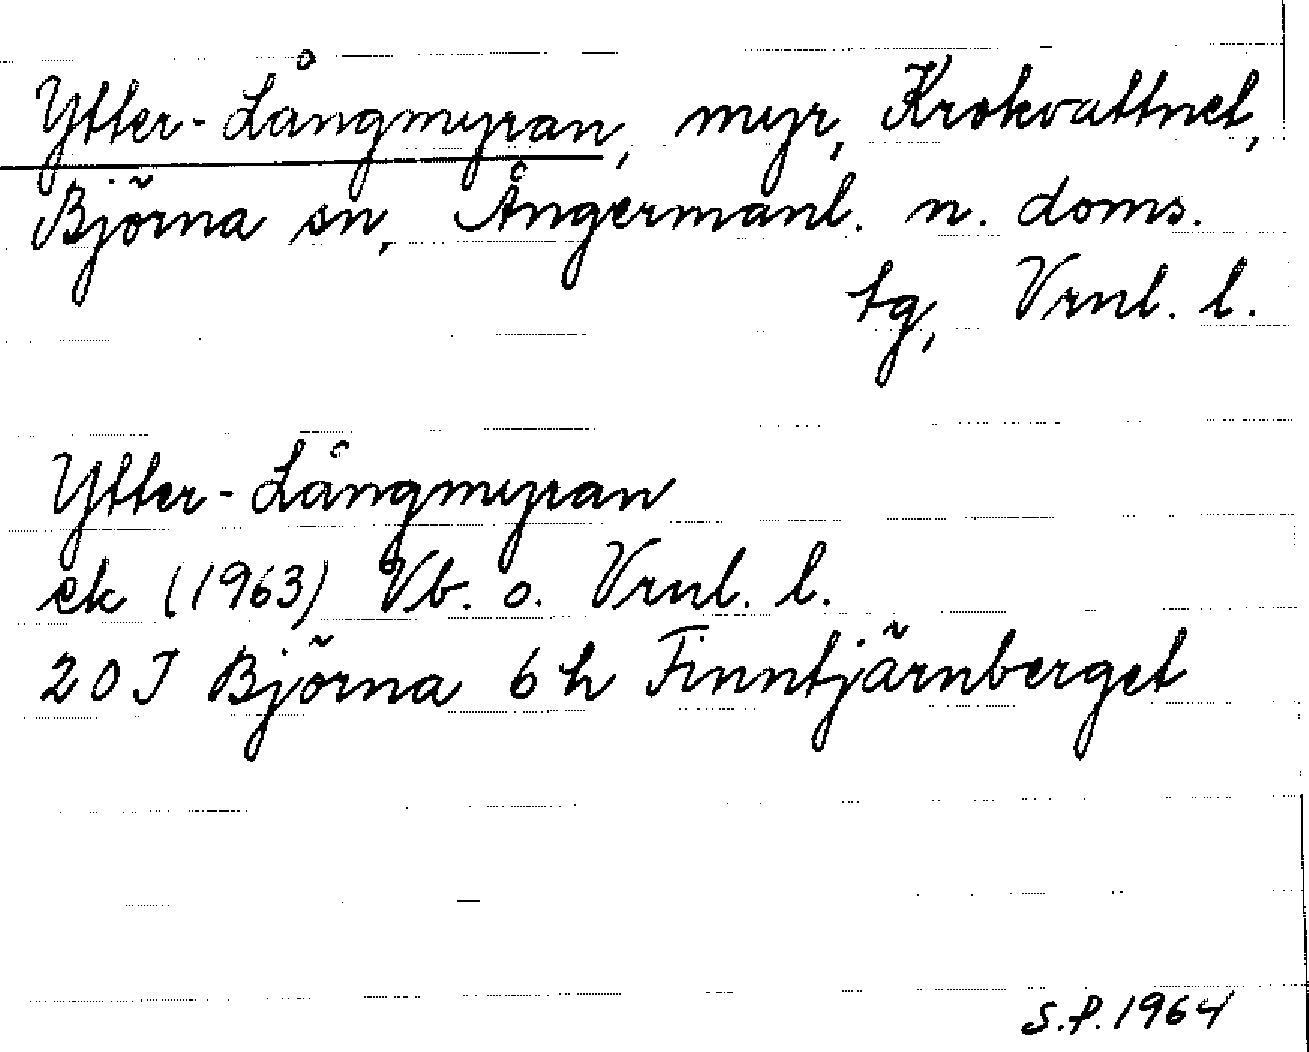 Ytter-Långmyran, myr, Krokvattnet,
Björna sn, Ångermanl. n. doms.
tg, Vrnl. l.
Ytter-Långmyran
ek (1963) Vb. o. Vrnl. l.
20 J Björna 6 h Finntjärnberget
S.P. 1964